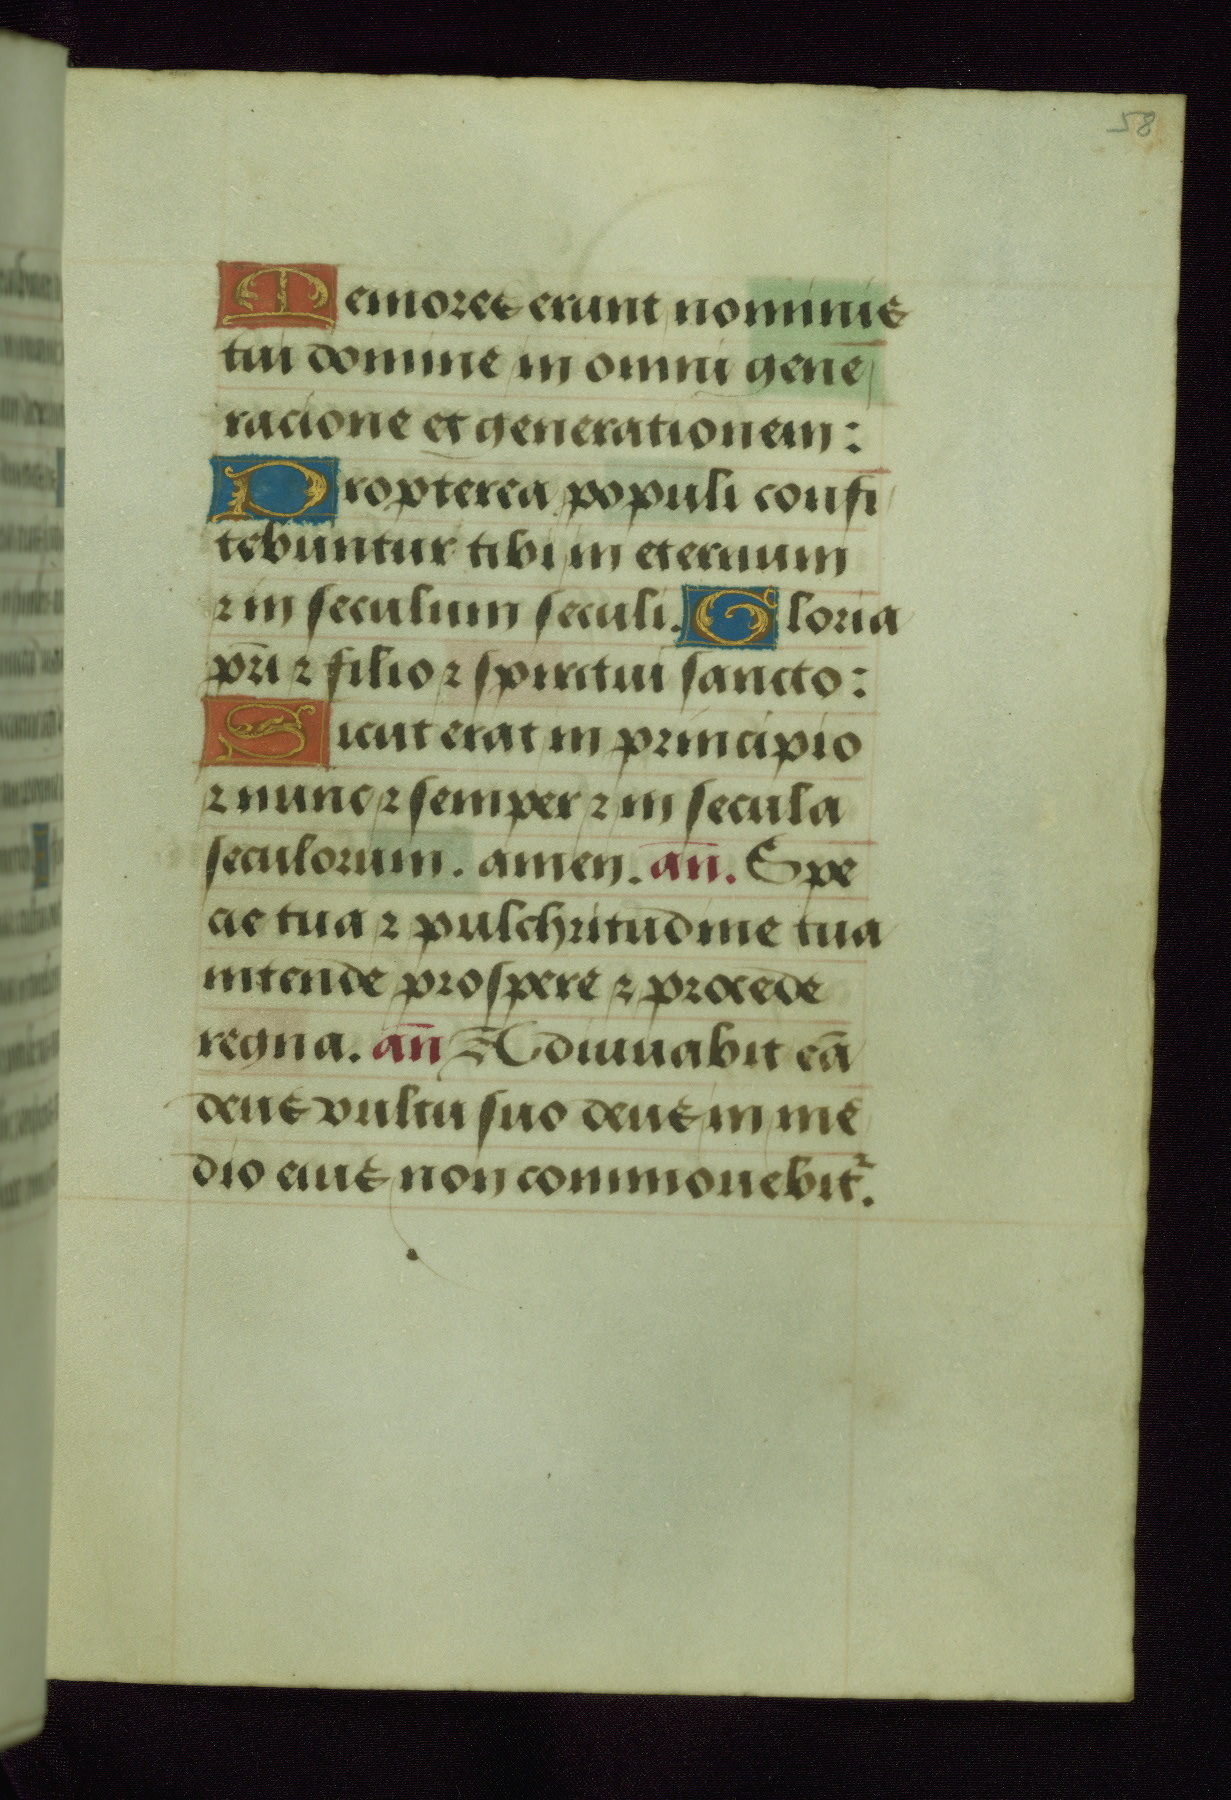 58
Memores erunt nominis
tui domine in omni gene
racione et generationem:
Propterea populi confi
tebuntur tibi in eternum
⁊ in seculum seculi. Gloria
pr̄i ⁊ filio ⁊ spiritui sancto:
Sicut erat in principio
⁊ nunc ⁊ semper ⁊ in secula
seculorum. amen. an̄. Spe
cie tua ⁊ pulchritudine tua
intende prospere ⁊ procede
regna. an̄ Adiuuabit eā
deus vultu suo deus in me
dio eius non commouebit᷑.